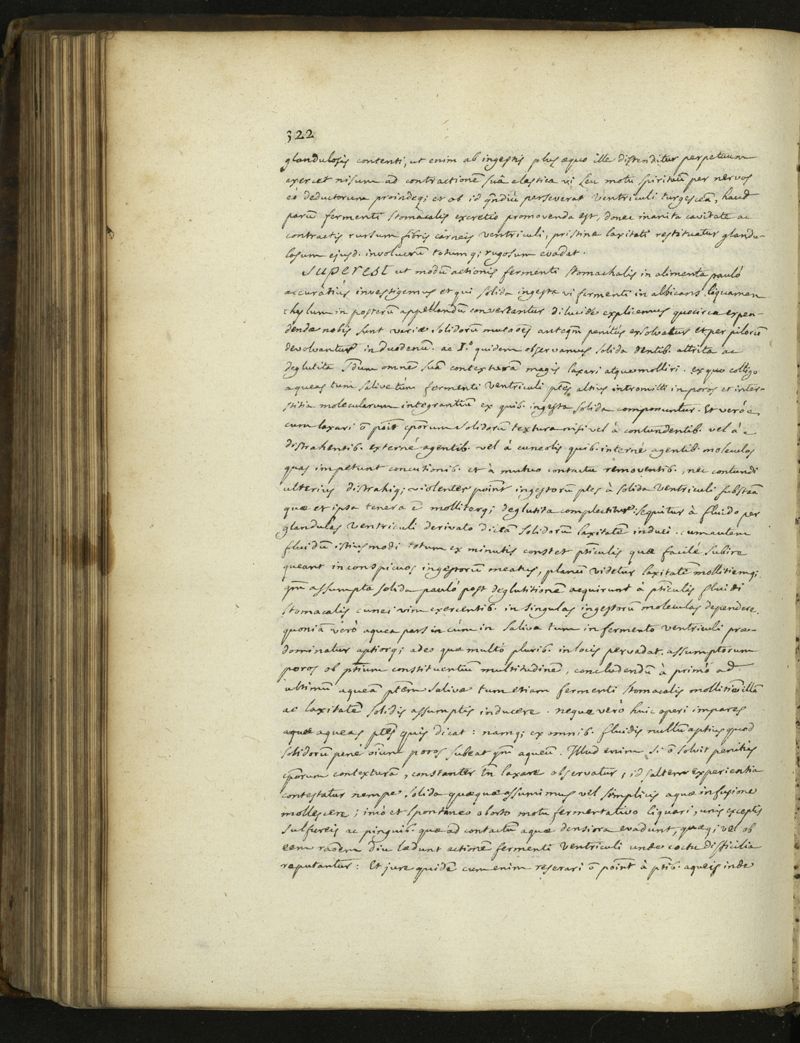 322
glandulosis contenti, ut enim ab ingestis plus æquo ille distenditur perpetuum
exercet nisum ad contractionē suā elastica vi seu motu spirituū per nervos
eò deductorum proindeq; et ob id qṃdiù perseverat ventriculi turgescā, haud
parū fermenti stomacalis excretio promovenda est, donec inanita cavitate ac
contractis rursum fibris carneis ventriculi, pristinæ laxitati restituatur glandu-
losum ejusd. involucrū totum q; rugosum evadat.
Superest ut modū actionis fermenti stomachalis in alimenta pauló
accuratiùs investigemus et qui solida ingesta vi fermenti in albicans liquamen
chylum in posterū appellandū convertantur dilucidè explicemus quocirca expen-
dendæ nobis sunt variæ solidorū mutaōes anteqm̄ penitùs exsolvatur et per pilorū
devolvantur in duodenū. ac 1.º quidem observamus solida dentib. attrita ac
deglutita sdum omnē suā contexturā magis laxari atque molliri. ex quo colligo
aqueas tum salivæ tum fermenti ventriculi ptes altius intromitti in poros et inter-
stitia molecularum integrantiū ex quib. ingesta solida componuntur. Et verò
cum laxari ō possit cporum solidorū textura nisi vel à contundentib. vel à
distrahentib. externè agentib. vel à cuneolis quib. internè agentib. moleculas
quas impetunt concutionib. et à mutuo contactu removentib., nec contundi
ulterius distrahiq; violenter possint ingestorū ptes à solida ventriculi substāā
quæ et ipsa tenera ē mollitergq; deglutita complectitur. sequitur à fluido per
glandulas ventriculi derivato dictā solidorū laxitatē induci. cum autem
fluidū istiusmodi totum ex minutis constet pticulis quæ facilè subire
queant inconspicuos ingestorū meatus, planū videtur laxitatē mollitiemq;
qm̄ assumpta solida pauló post deglutitionē acquirunt à pticulis fluidi
stomacalis cunei vim exercentib. in singulas ingestorū moleculas dependere.
quoniā verò aquea pars in cum in saliva tum in fermento ventriculi præ-
dominatur aptiorq; adeo quæ multò plurib. in locis pervadat assumptorum
poros ob ptium constituentiū multitudinē, concludendū à primo ad
ultimū aqueā ptem salivæ tum etiam fermenti stomacalis mollitiē illā
ac laxitatē solidis assumptis inducere. neque verò huic operi impares
aquæ aqueas ptes quis dicat: namq; ex omnib. fluidis nullū aptius quod
solidorū penè oīum poros subeat qm̄ aqueū. Illud enim si ō solvit penitùs
cporum contexturā, constanter tn̄ laxare observatur, id saltem experientia
contestatur nempe solida quæque assumimus vel simplicis aquæ infusione
mollescere; imò et spontaneo aborto motu fermentativo liquari, unis exceptis
sulfureis ac pinguib. quæ ad contactū aquæ densiora evadunt, quæq; vel ob
eam raōem diu lædunt actionē fermenti ventriculi unde coctu difficilia
reputantur: Et jure quidē cum enim reserari ō possint à ptib. aqueis inde